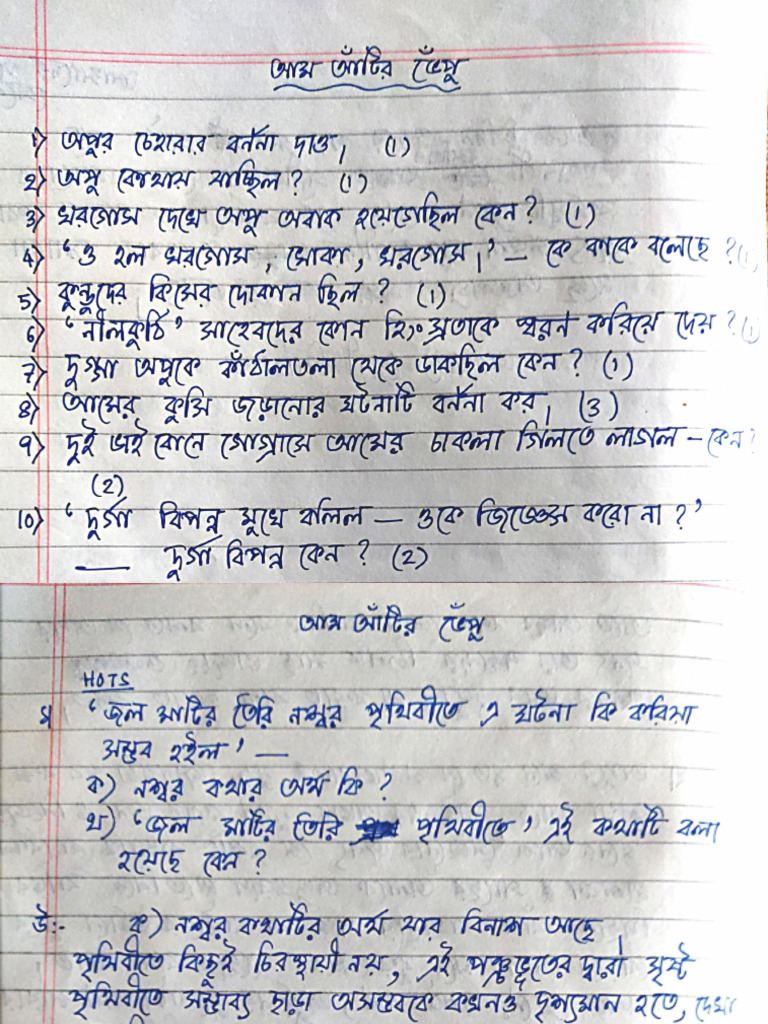 আম আঁটির ভেঁপু
১) অপুর চেহারার বর্ননা দাও। (1)
২) অপু কোথায় যাচ্ছিল? (1)
3) খরগোস দেখে অপু অবাক হয়েগেছিল কেন? (1)
4) 'ও হল খরগোস, খোকা, খরগোস।' – কে কাকে বলেছে? (1)
5) কুন্ডুদের কিসের দোকান ছিল? (1)
6) 'নীলকুঠি' সাহেবদের কোন হিংস্রতাকে স্মরন করিয়ে দেয়? (1)
7) দুগ্গা অপুকে কাঁঠালতলা থেকে ডাকছিল কেন? (1)
8) আমের কুসি জড়ানোর ঘটনাটি বর্ননা কর। (3)
9) দুই ভাই বোনে গোগ্রাসে আমের চাকলা গিলতে লাগল – কেন?
(2)
10) 'দুর্গা বিপন্ন মুখে বলিল — ওকে জিজ্ঞেস করো না?'
— দুর্গা বিপন্ন কেন? (2)
আম আঁটির ভেঁপু
HOTS
১। 'জল মাটির তৈরি নশ্বর পৃথিবীতে এ ঘটনা কি করিয়া
সম্ভব হইল' —
ক) নশ্বর কথার অর্থ কি?
খ) 'জল মাটির তৈরি পৃথিবীতে' এই কথাটি বলা
হয়েছে কেন?
উঃ- ক) নশ্বর কথাটির অর্থ যার বিনাশ আছে।
পৃথিবীতে কিছুই চিরস্থায়ী নয়, এই পঞ্চভূতের দ্বারা সৃষ্ট
পৃথিবীতে সম্ভাব্য ছাড়া অসম্ভবকে কখনও দৃশ্যমান হতে, দেখা